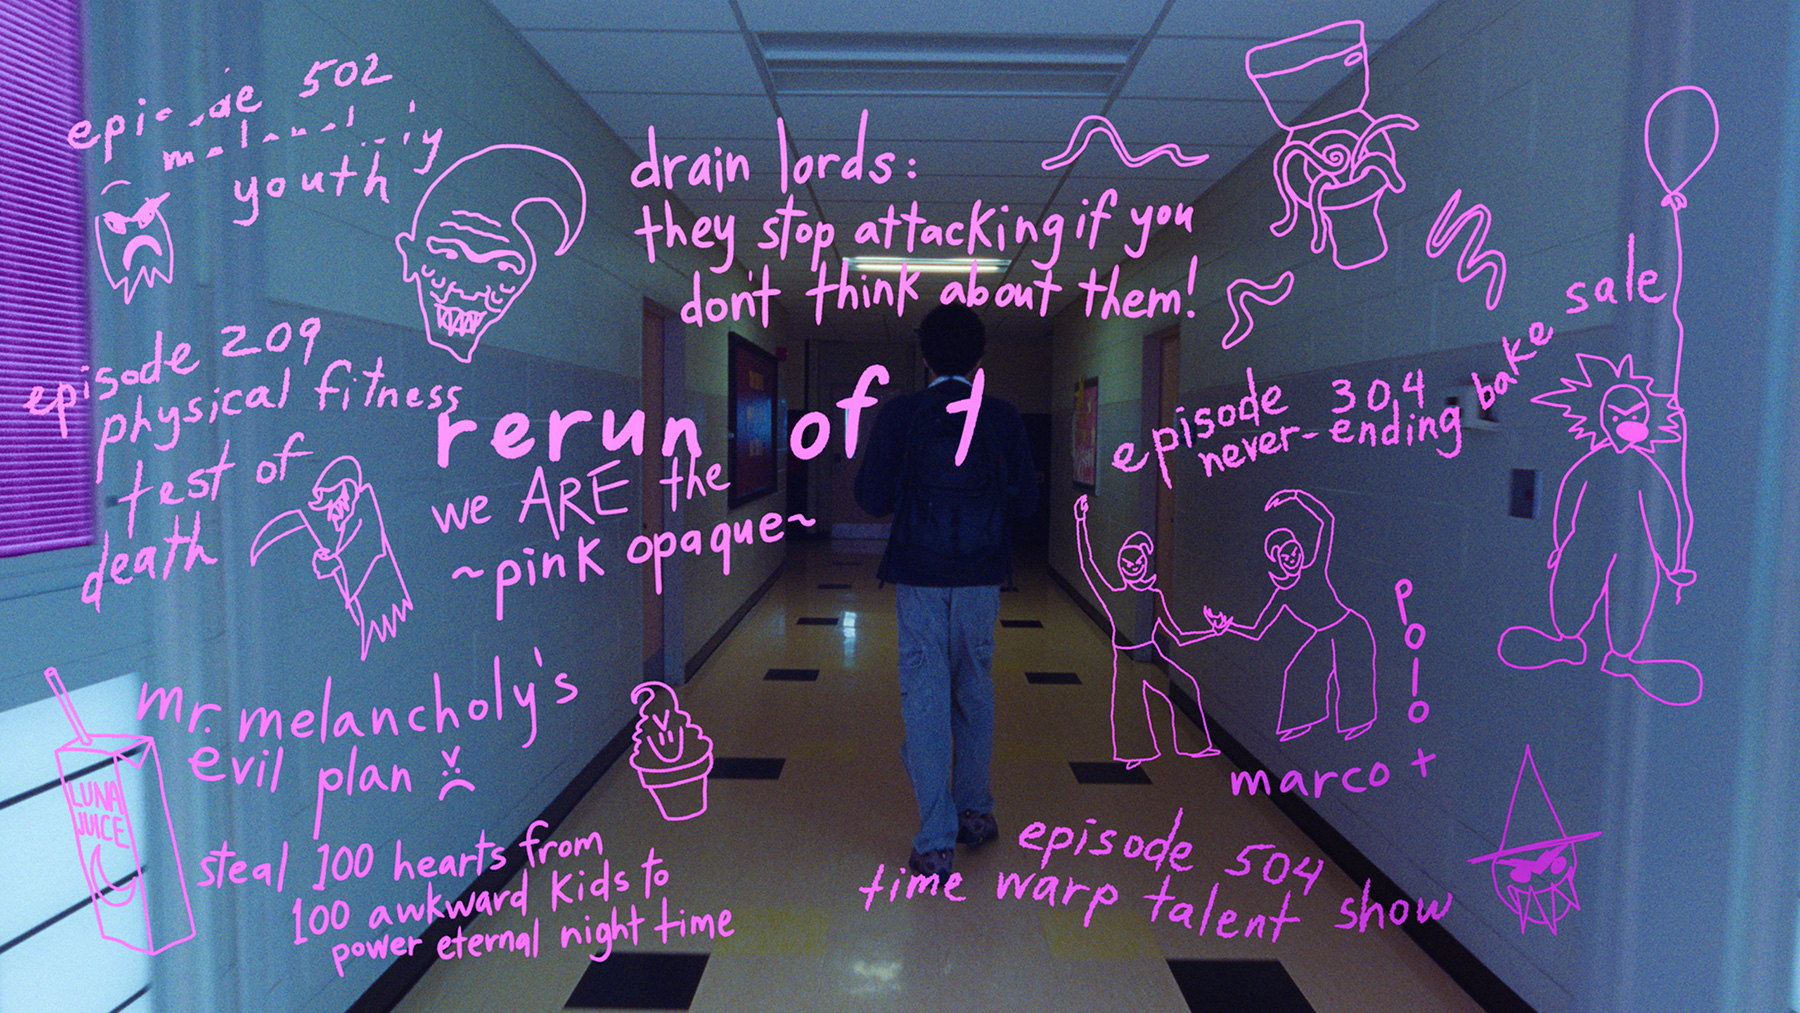 502
youth
episode 209
physical fitness
test of
death
drain lords:
they stop attacking if you
don't think about them!
rerun of
we ARE the
~pink opaque~
episode 304
never-ending bake sale
mr. melancholy's
evil plan
LUNA
JUICE
steal 100 hearts from
100 awkward kids to
power eternal night time
marco +
polo
episode 504
time warp talent show